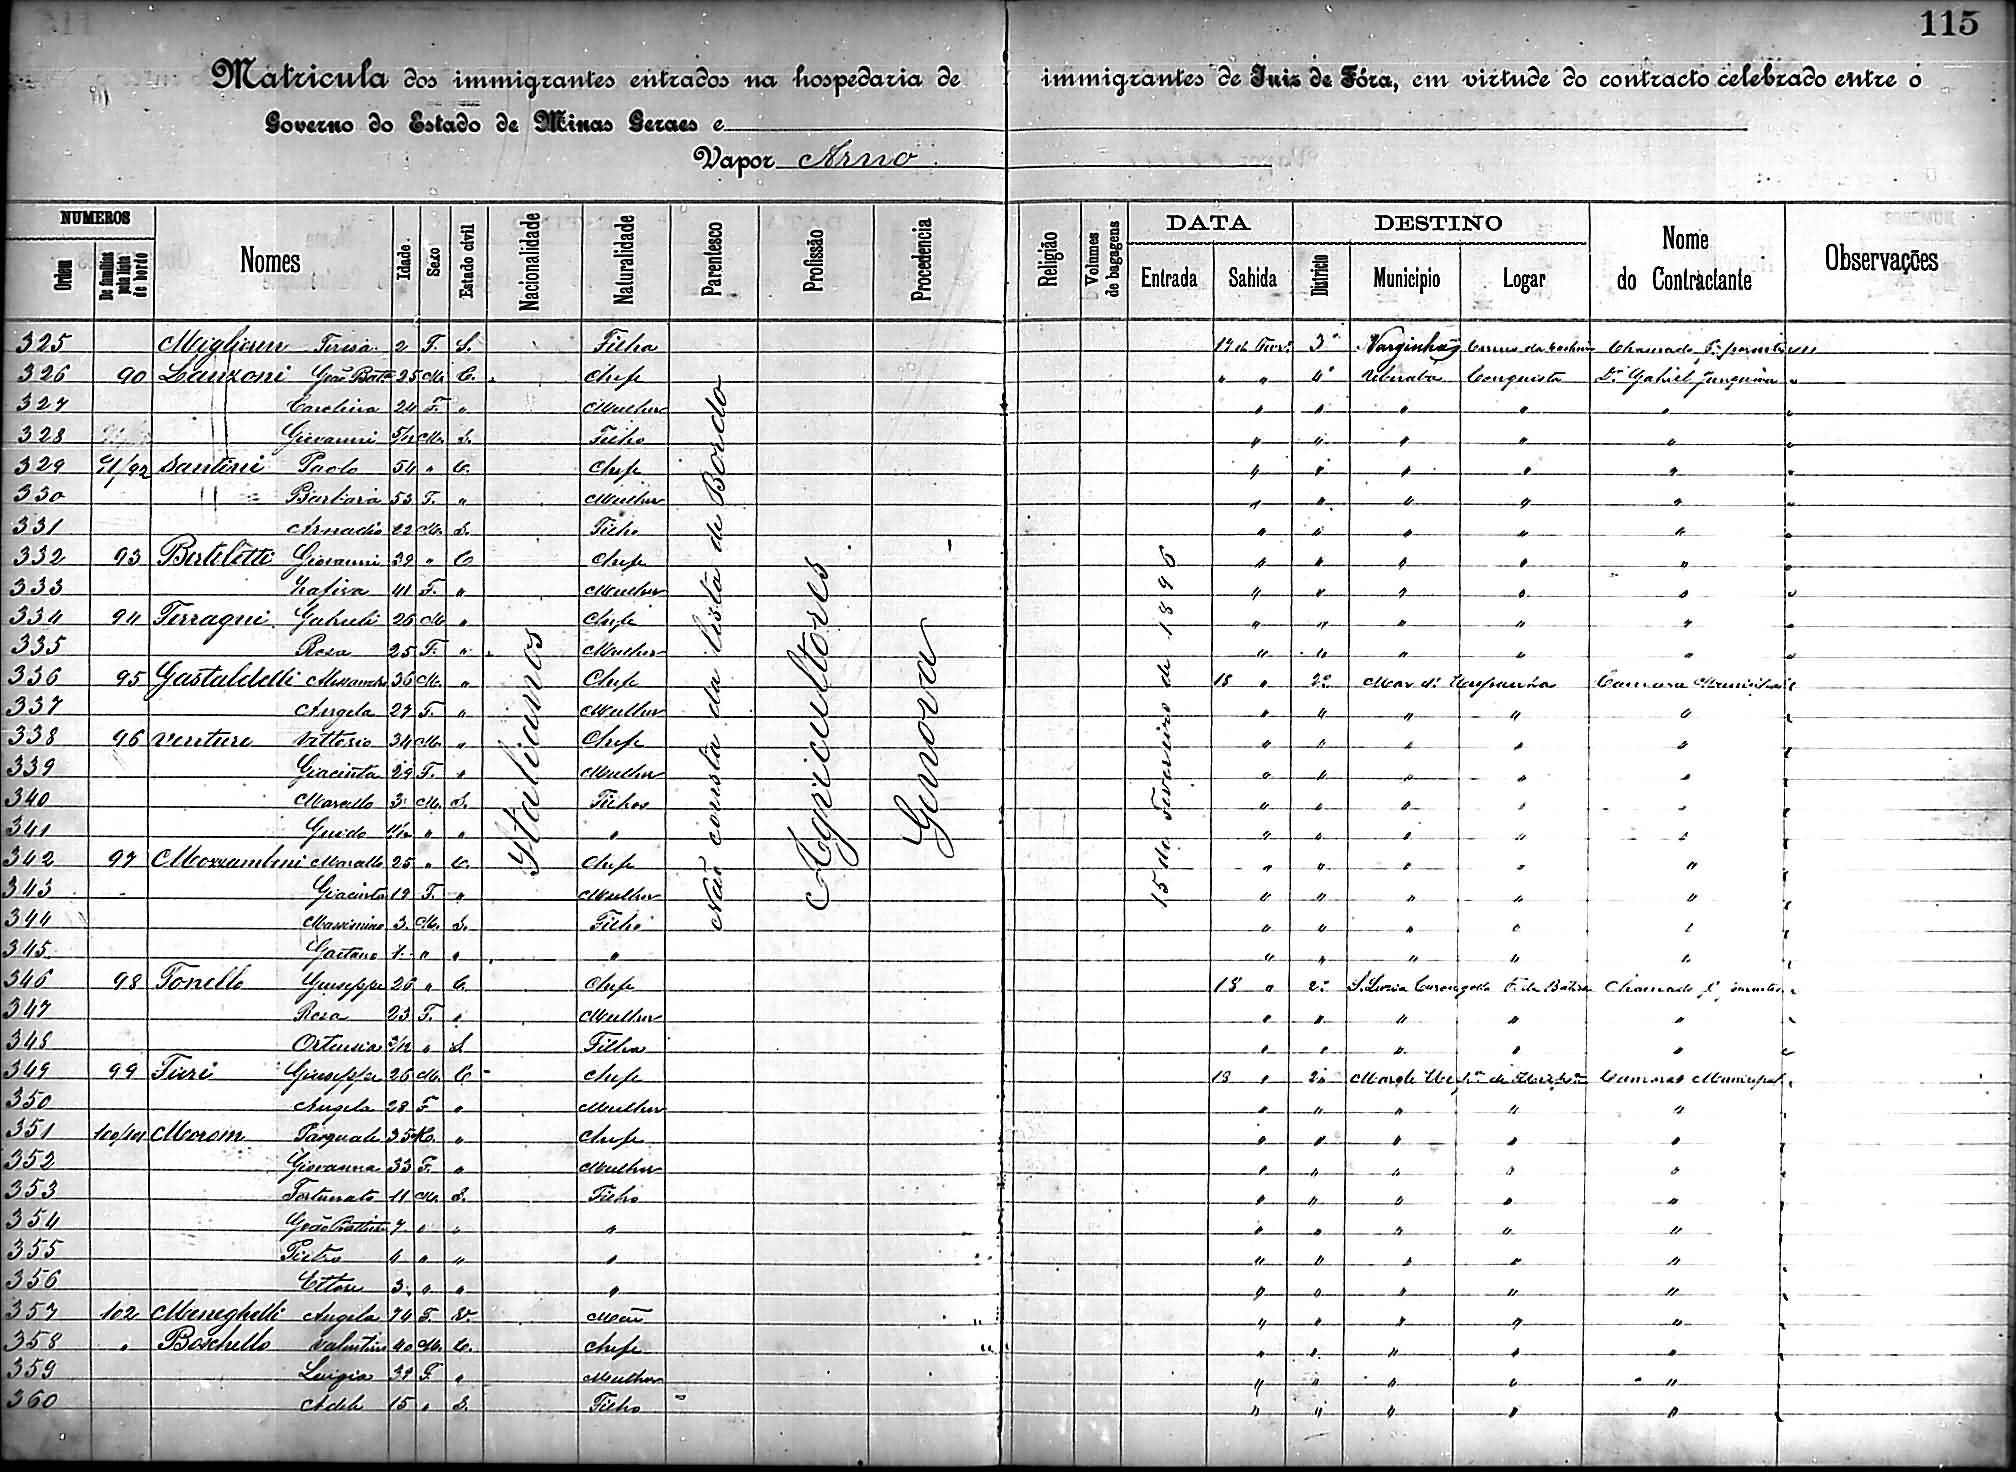 115
Matricula dos immigrantes entrados na hospedaria de immigrantes de Juiz de Fóra, em virtude do contracto celebrado entre o
Governo do Estado de Minas Geraes e
Vapor Arno
NUMEROS
Ordem De familias pela lista de bordo Nomes Idade. Sexo Estado civil Nacionalidade Naturalidade Parentesco Profissão Procedencia Religião Volumes de bagagens DATA Entrada Sahida DESTINO Districto Municipio Logar Nome do Contractante Observações
Italianos
Não consta da lista de Bordo
Agricultores
Genova
15 de Fevereiro de 1896
325 Teresa 2 F. S. Filha 17 de Fever.º 3º Varginha Chamado
326 90 Lanzoni Gião Batª 25 M. C. Chefe " " 4º Uberaba Conquista Dr. Gabriel Junqueira
327 Carolina 24 F. " Mulher " " " " "
328 Giovanni 5/12 M. S. Filho " " " " "
329 91/92 Santini Paolo 54 " C. Chefe " " " " "
330 Barbara 53 F. " Mulher " " " " "
331 Arnadio 22 M. S. Filho " " " " "
332 93 Bertiletti Giovanni 39 " C Chefe " " " " "
333 41 F. " Mulher " " " " "
334 94 Ferragni Gabrieli 26 M " Chefe " " " " "
335 Rosa 25 F. " Mulher " " " " "
336 95 Gastaldelli Alessandro 36 M. " Chefe 18 " 2º Mar d' Hespanha Camara Municipal
337 Angela 27 F. " Mulher " " " " "
338 96 Venturi Vittorio 34 M. " Chefe " " " " "
339 Giacinta 29 F. " Mulher " " " " "
340 Marcello 3 M. S. Filhos " " " " "
341 Guido 11/12 " " " " " " " "
342 97 Mozzamboni Marcello 25 " C. Chefe " " " " "
343 Giacinta 19 F. " Mulher " " " " "
344 Massimino 3. M. S. Filho " " " " "
345 Gaetano 1. " " " " " " " "
346 98 Tonello Giuseppe 26 " C. Chefe 18 " 2º S. Luzia Carangola Chamado
347 Rosa 23 F. " Mulher " " " " "
348 Ortensia 3/12 " S Filha " " " " "
349 99 Fieri Giuseppe 26 M. C Chefe 18 " 2º Camara Municipal
350 Angela 28 F " Mulher " " " " "
351 100/101 Morom Pasquale 35 M. " Chefe " " " " "
352 Giovanna 33 F. " Mulher " " " " "
353 Fortunato 11 M. S. Filho " " " " "
354 7 " " " " " " " "
355 Pietro 4 " " " " " " " "
356 Ettore 3. " " " " " " " "
357 102 Meneghelli Angela 74 F. V. Mãe " " " " "
358 " Boschello Valentino 40 M. C. Chefe " " " " "
359 Luigia 39 F. " Mulher " " " " "
360 Adele 15 " S. Filho " " " " "